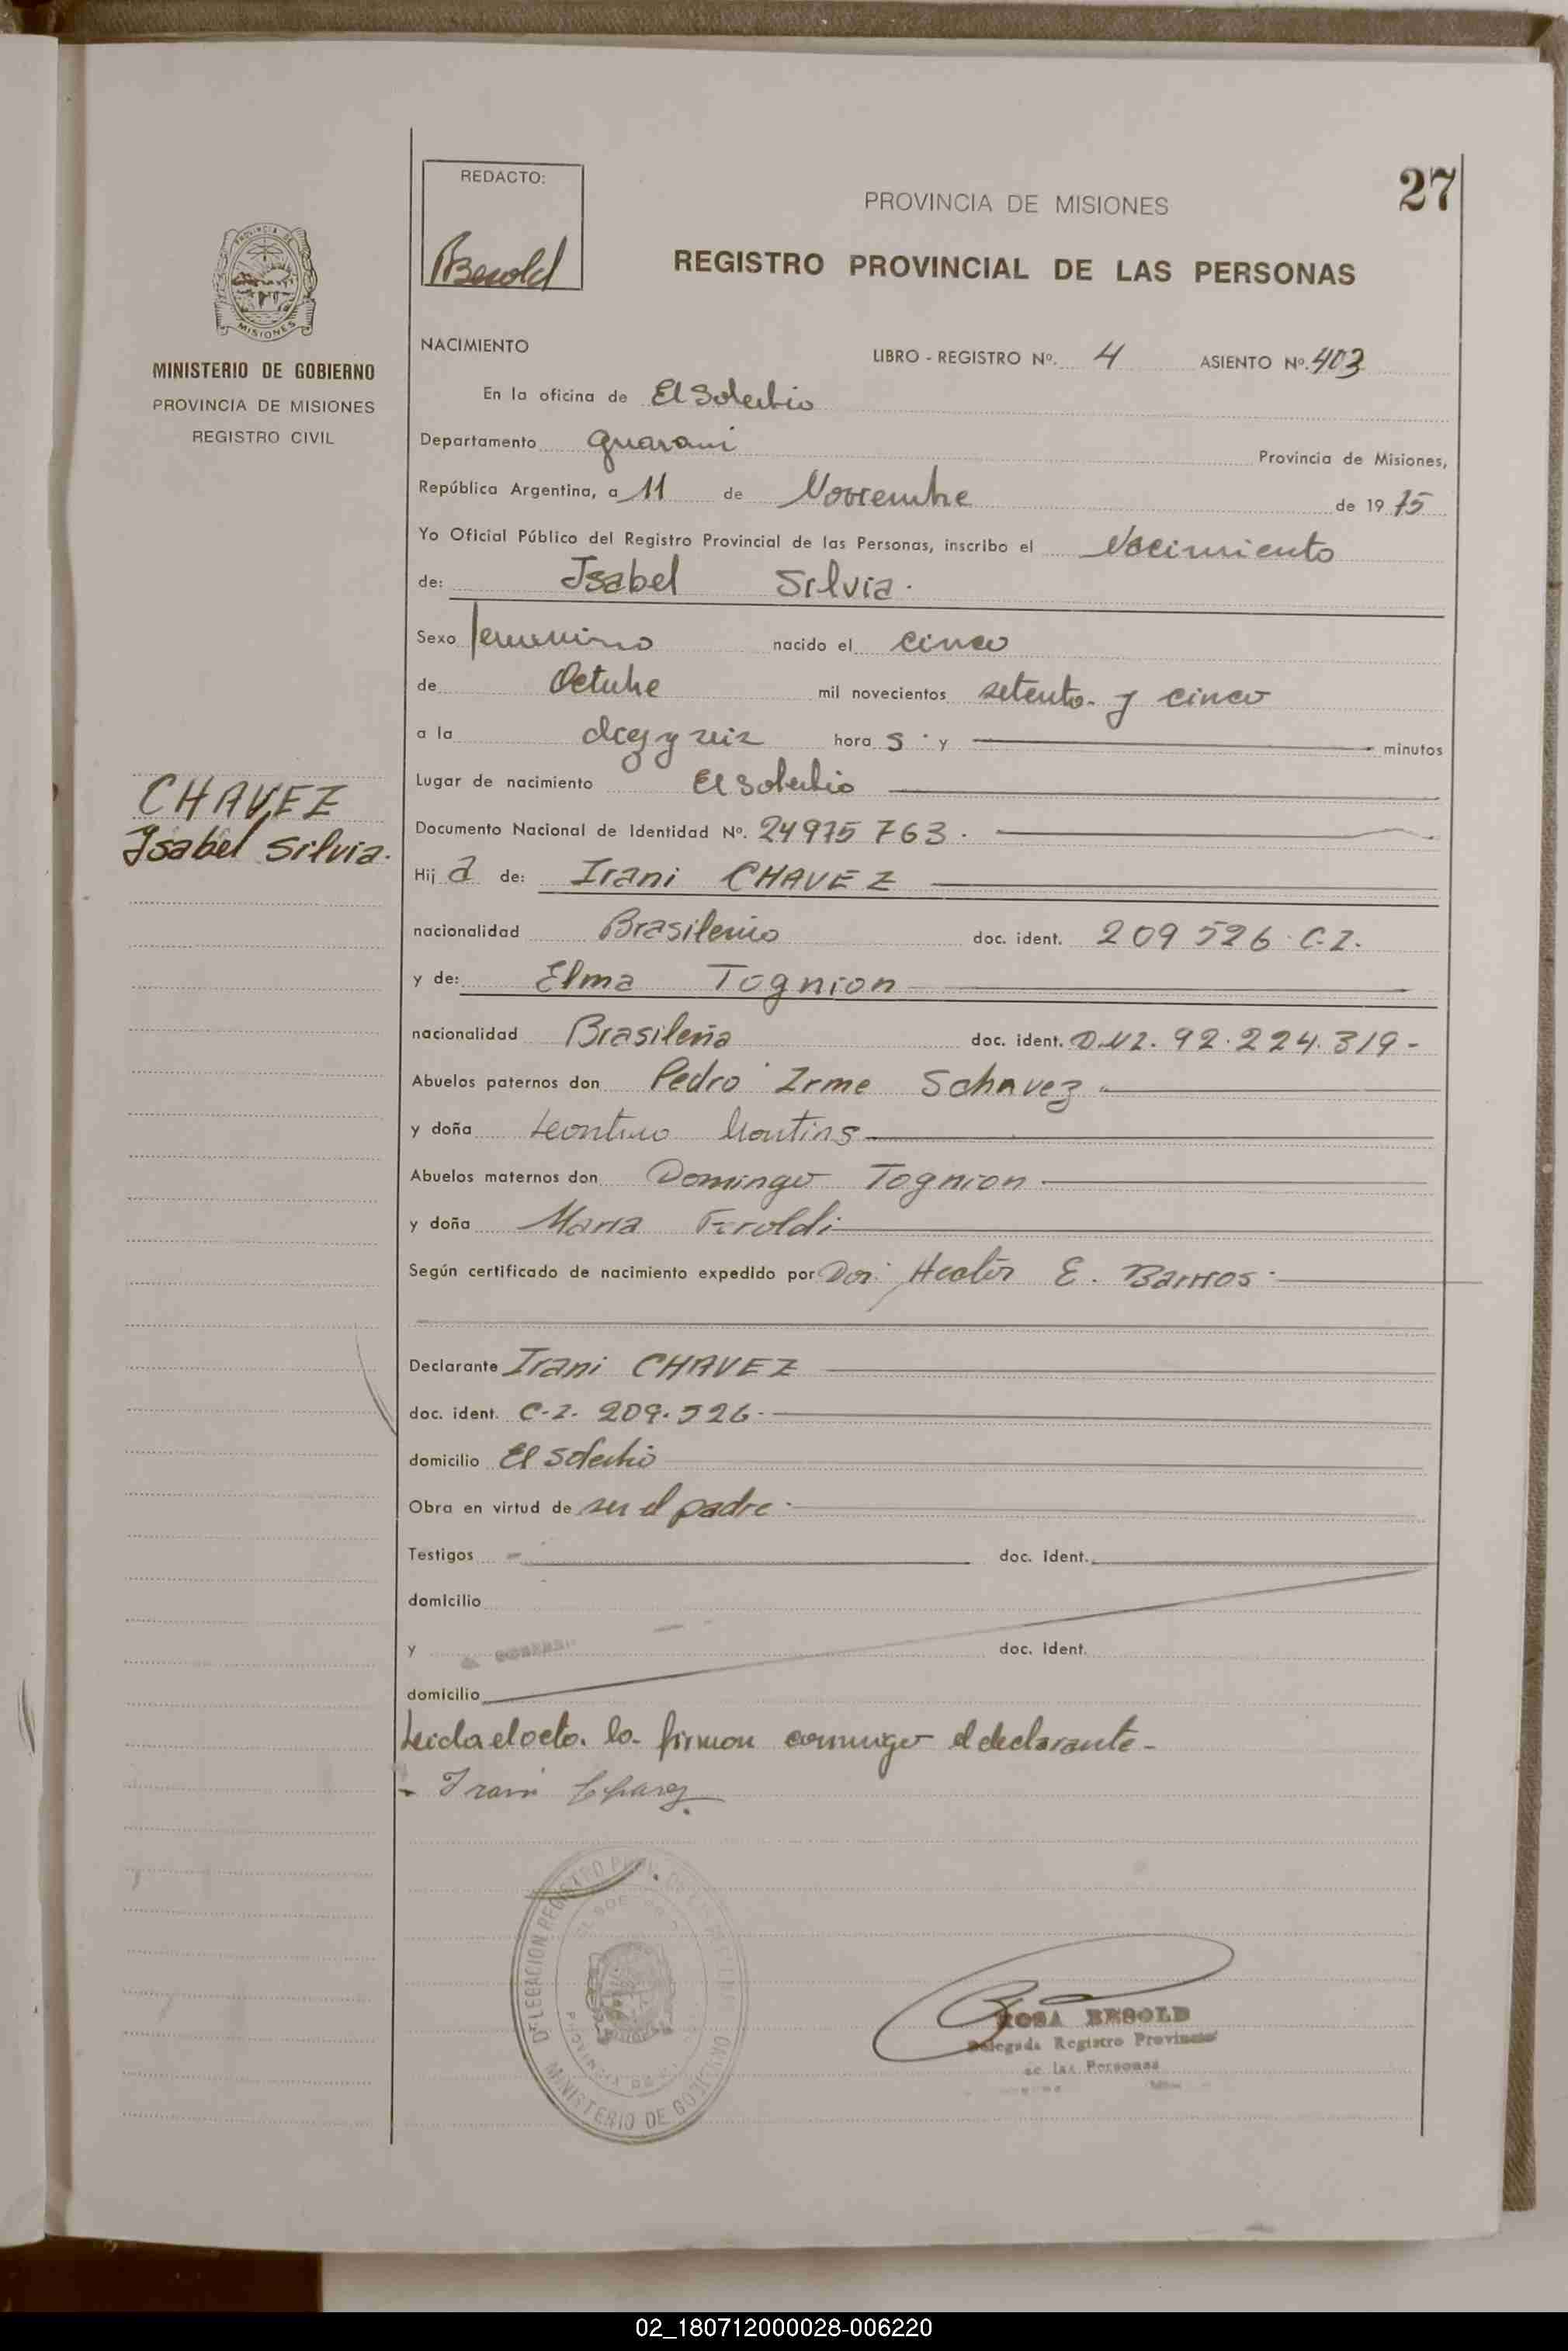 27
REDACTO:
Besold
PROVINCIA DE MISIONES
REGISTRO PROVINCIAL DE LAS PERSONAS
MISIONES
MINISTERIO DE GOBIERNO
PROVINCIA DE MISIONES
REGISTRO CIVIL
NACIMIENTO
LIBRO - REGISTRO Nº. 4 ASIENTO Nº. 403
En la oficina de El Soberbio
Departamento Guarani Provincia de Misiones,
República Argentina, a 11 de Noviembre de 1975
Yo Oficial Público del Registro Provincial de las Personas, inscribo el Nacimiento
de: Isabel Silvia.
Sexo femenino nacido el cinco
de Octubre mil novecientos setenta y cinco
a la diez y seis hora s y minutos
Lugar de nacimiento El Soberbio
CHAVEZ
Isabel Silvia.
Documento Nacional de Identidad Nº. 24975763.
Hij a de: Irani CHAVEZ
nacionalidad Brasilenio doc. ident. 209526 C.I.
y de: Elma Tognion
nacionalidad Brasileña doc. ident. D.N.I. 92.224.319-
Abuelos paternos don Pedro Irme Schavez
y doña Martins
Abuelos maternos don Domingo Tognion
y doña Maria Feroldi
Según certificado de nacimiento expedido por Dor. Hector E. Barrios.
Declarante Irani CHAVEZ
doc. ident. C-I- 209.526-
domicilio El Soberbio
Obra en virtud de ser el padre.
Testigos doc. Ident.
domicilio
y doc. Ident.
domicilio
Leida el acta. la firman conmigo el declarante-
Irani Chavez
DELEGACION REGISTRO PROV. DE LAS PERSONAS
MINISTERIO DE GOBIERNO
ROSA BESOLD
Delegada Registro Provincial
de las Personas
02_180712000028-006220